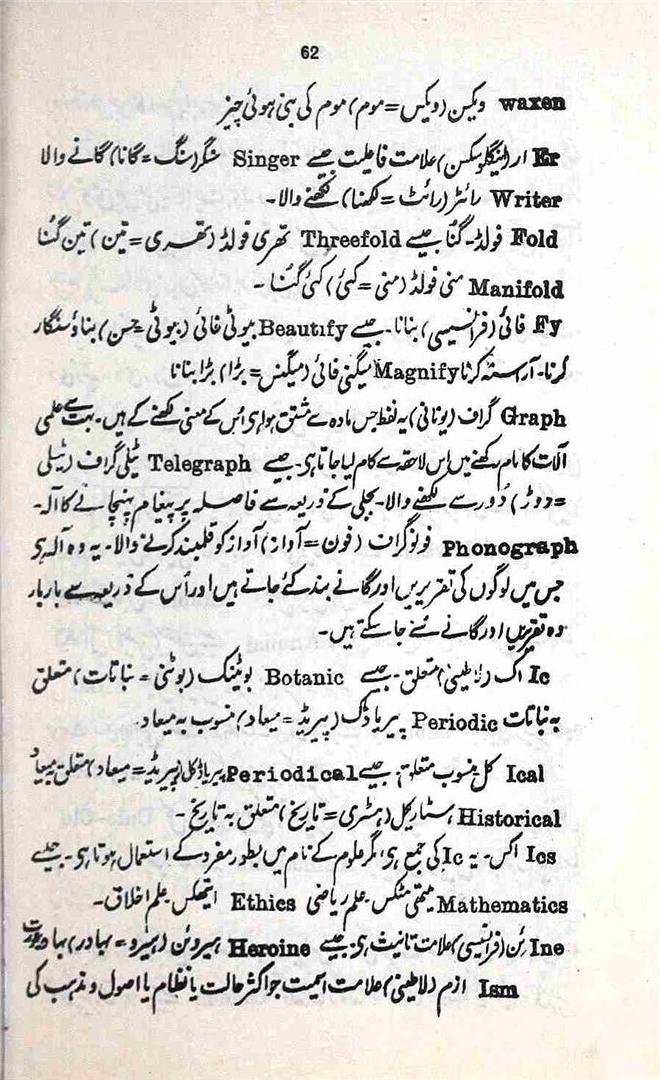 62
waxen ویکسن (ویکس = موم) موم کی بنی ہوئی چیز
Er ار (اینگلوسکسن) علامت فاعلیت جیسے Singer سنگر (سنگ = گانا) گانے والا
Writer رائٹر (رائٹ = لکھنا) لکھنے والا۔
Fold فولڈ۔ گنا جیسے Threefold تھری فولڈ (تھری = تین) تین گنا
Manifold منی فولڈ (منی = کئی) کئی گنا۔
Fy فائی (فرانسیسی) بنانا۔ جیسے Beautify بیوٹی فائی (بیوٹی = حسن) بناؤ سنگار
کرنا۔ آراستہ کرنا Magnify میگنی فائی (میگنس = بڑا) بڑا بنانا
Graph گراف (یونانی) یہ لفظ جس مادہ سے مشتق ہوا ہی اُس کے معنی لکھنے کے ہیں۔ بہت سے علمی
آلات کا نام رکھنے میں اس لاحقہ سے کام لیا جاتا ہی۔ جیسے Telegraph ٹیلی گراف (ٹیلی
= دور) دُور سے لکھنے والا۔ بجلی کے ذریعہ سے فاصلہ پر پیغام پہنچانے کا آلہ۔
Phonograph فونوگراف (فون = آواز) آواز کو قلمبند کرنے والا۔ یہ وہ آلہ ہی
جس میں لوگوں کی تقریریں اور گانے بند کئے جاتے ہیں اور اُس کے ذریعہ سے بار بار
وہ تقریریں اور گانے سُنے جا سکتے ہیں۔
Ic اک (لاطینی) متعلق۔ جیسے Botanic بوٹینک (بوٹنی = نباتات) متعلق
بہ نباتات Periodic پیریاڈک (پیریڈ = میعاد) منسوب بہ میعاد۔
Ical کل منسوب متعلق جیسے Periodical پیریاڈکل (پیریڈ = میعاد) متعلق بہ میعاد
Historical ہسٹاریکل (ہسٹری = تاریخ) متعلق بہ تاریخ۔
Ics اکس۔ یہ Ic کی جمع ہی، مگر علوم کے نام میں بطور مفرد کے استعمال ہوتا ہی۔ جیسے
Mathematics میتھی مٹکس علم ریاضی Ethics ایتھکس علم اخلاق۔
Ine ئن (فرانسیسی) علامت تانیث ہی۔ جیسے Heroine ہیروئن (ہیرو = بہادر) بہادر عورت
Ism ازم (لاطینی) علامت اسمیت جو اکثر حالت یا نظام یا اصول و مذہب کی